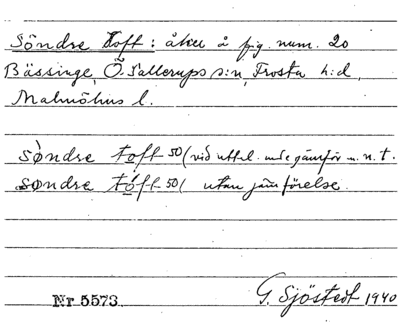 Söndre Toft: åker å fig. num. 20
Bässinge, Ö. Sallerups s:n, Frosta h:d,
Malmöhus l.
sǿndre toft 50/ (vid uttal med jämför m. n. t.
søndre toft 50/ utan jämförelse.
Nr 5573
G. Sjöstedt 1940